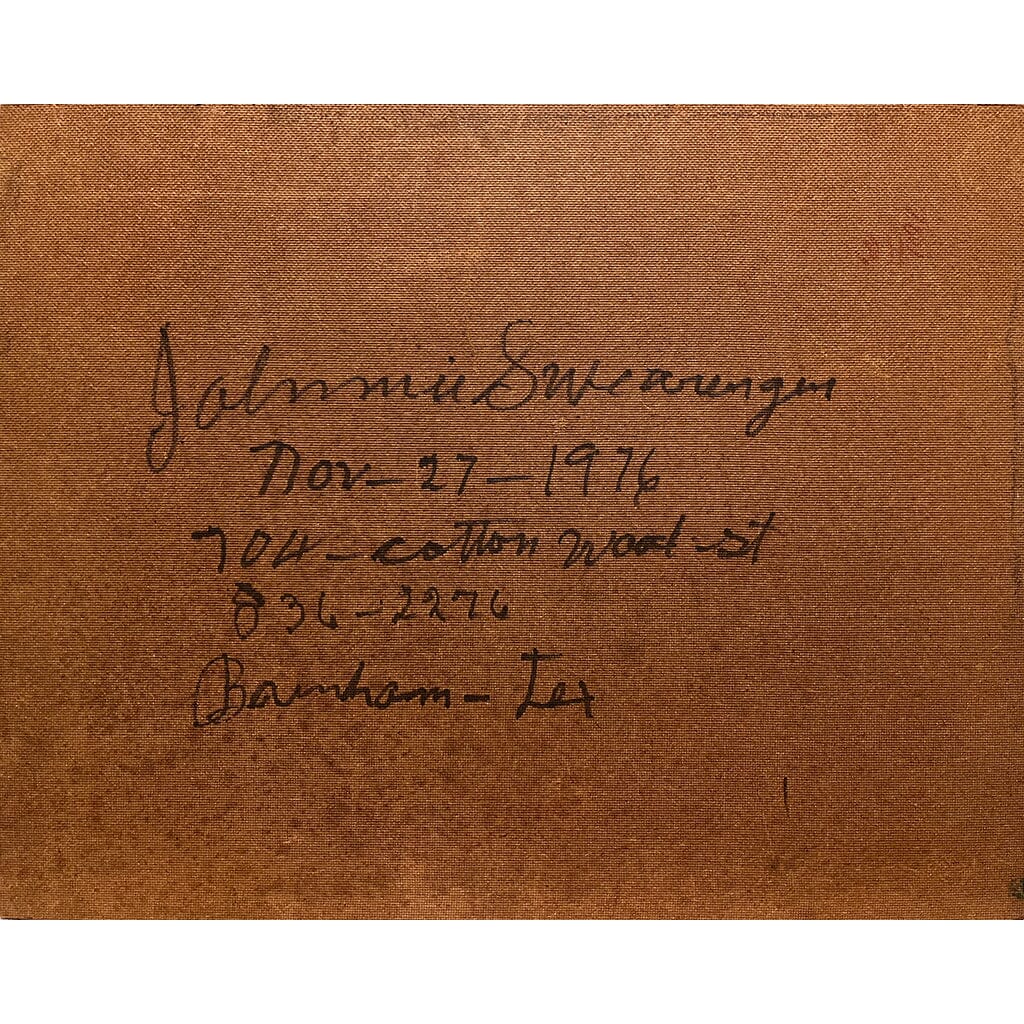 Johnnie Swearengen
Nov-27-1976
704-cotton wood-st
836-2276
Bornham-Tex